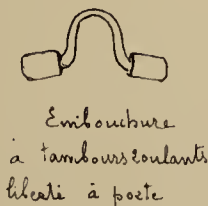 Embouchure
à tambours roulants
liberté à porte